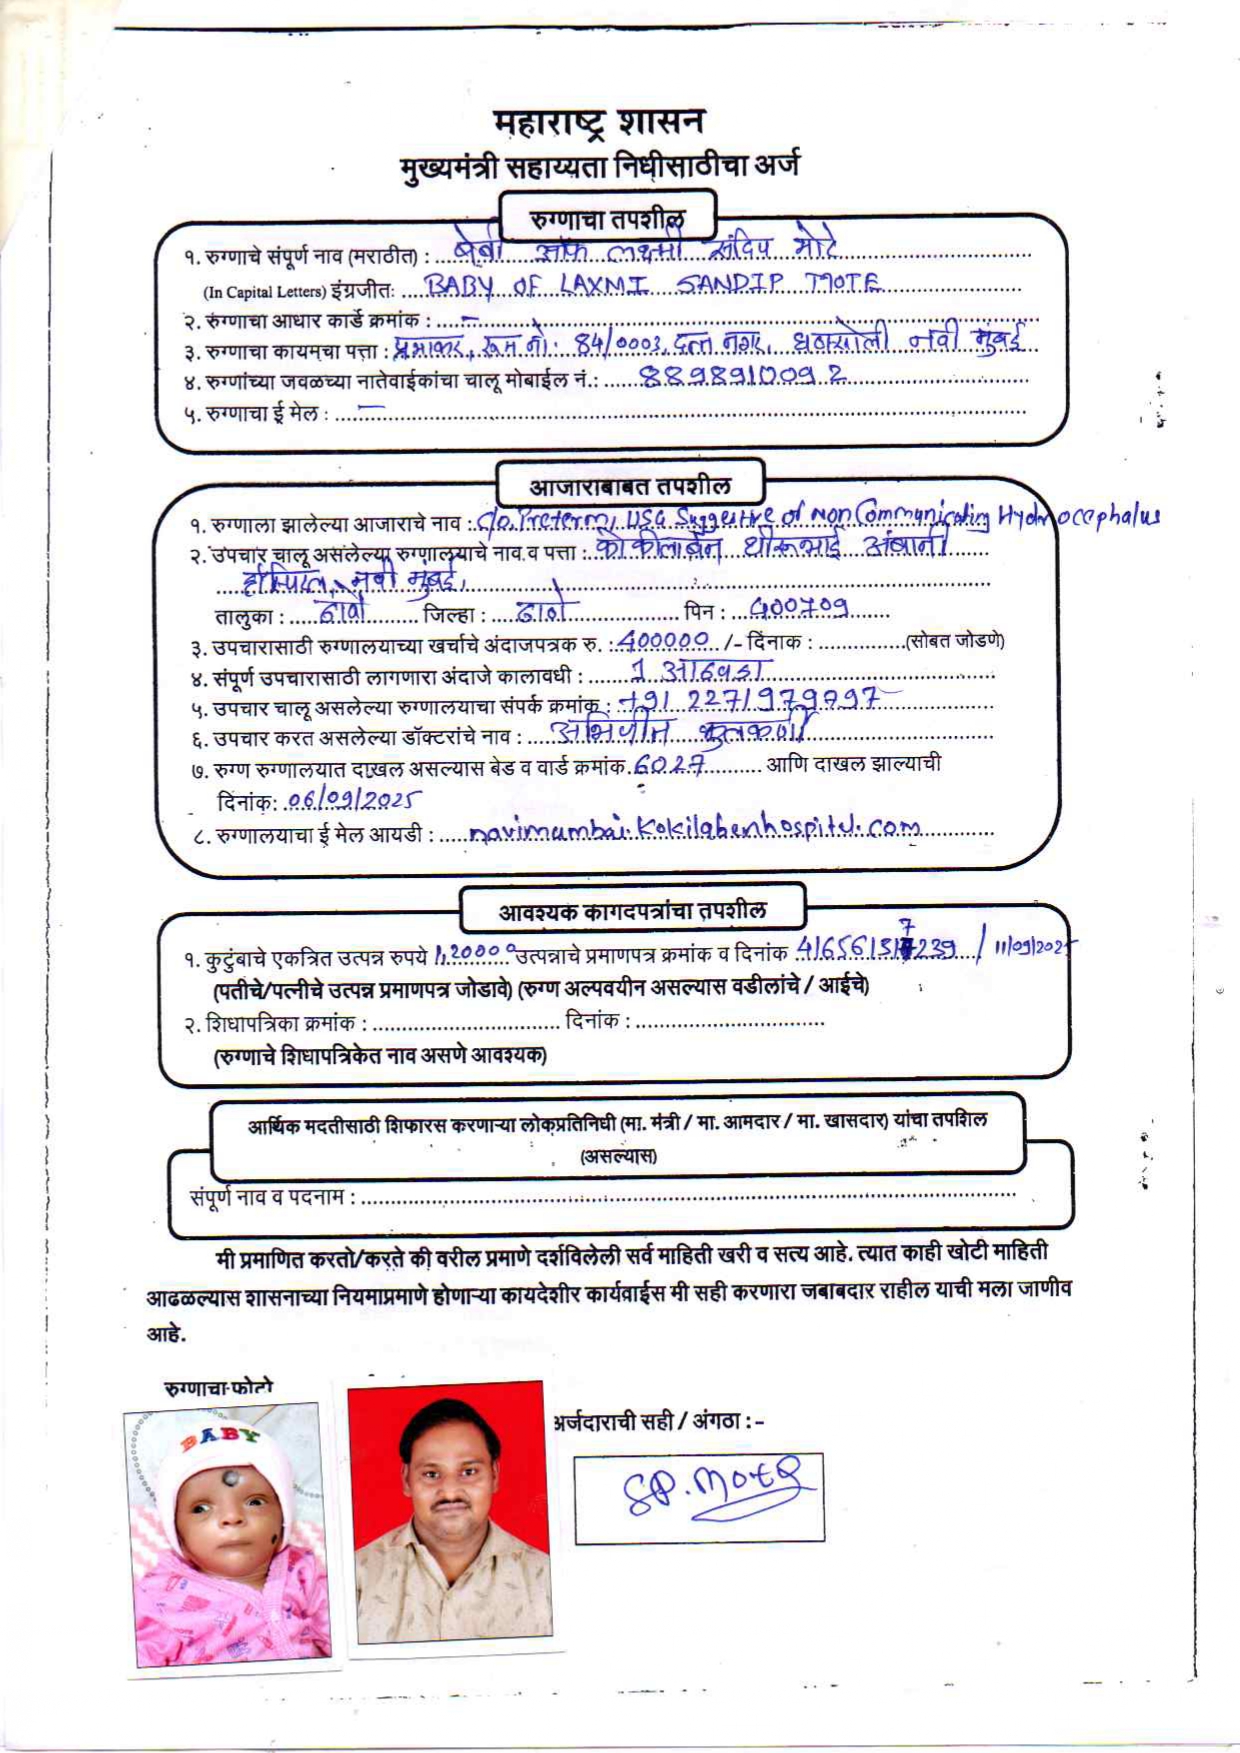 महाराष्ट्र शासन
मुख्यमंत्री सहाय्यता निधीसाठीचा अर्ज
रुग्णाचा तपशील
१. रुग्णाचे संपूर्ण नाव (मराठीत) : बेबी ऑफ लक्ष्मी संदिप मोटे
(In Capital Letters) इंग्रजीतः BABY OF LAXMI SANDIP MOTE
२. रुग्णाचा आधार कार्ड क्रमांक : –
३. रुग्णाचा कायमचा पत्ता : प्रभाकर, रूम नो. 84/0003, दत्त नगर, नवी मुंबई
४. रुग्णांच्या जवळच्या नातेवाईकांचा चालू मोबाईल नं.: 8898910092
५. रुग्णाचा ई मेल : –
आजाराबाबत तपशील
१. रुग्णाला झालेल्या आजाराचे नाव : c/o. Preterm, USG Suggestive of Non Communicating Hydrocephalus
२. उपचार चालू असलेल्या रुग्णालयाचे नाव व पत्ता : कोकीलाबेन धीरूभाई अंबानी
हॉस्पिटल, नवी मुंबई,
तालुका : ठाणे जिल्हा : ठाणे पिन : 400709
३. उपचारासाठी रुग्णालयाच्या खर्चाचे अंदाजपत्रक रु. : 400000 /- दिनांक : (सोबत जोडणे)
४. संपूर्ण उपचारासाठी लागणारा अंदाजे कालावधी : 1 आठवडा
५. उपचार चालू असलेल्या रुग्णालयाचा संपर्क क्रमांक : +91 2271979797
६. उपचार करत असलेल्या डॉक्टरांचे नाव : अभिजीत कुलकर्णी
७. रुग्ण रुग्णालयात दाखल असल्यास बेड व वार्ड क्रमांक. 6027 आणि दाखल झाल्याची
दिनांक: 06/09/2025
८. रुग्णालयाचा ई मेल आयडी : navimumbai.kokilabenhospital.com
आवश्यक कागदपत्रांचा तपशील
१. कुटुंबाचे एकत्रित उत्पन्न रुपये 1,20000 उत्पन्नाचे प्रमाणपत्र क्रमांक व दिनांक 416561317239 / 11/09/2025
(पतीचे/पत्नीचे उत्पन्न प्रमाणपत्र जोडावे) (रुग्ण अल्पवयीन असल्यास वडीलांचे / आईचे)
२. शिधापत्रिका क्रमांक : दिनांक :
(रुग्णाचे शिधापत्रिकेत नाव असणे आवश्यक)
आर्थिक मदतीसाठी शिफारस करणाऱ्या लोकप्रतिनिधी (मा. मंत्री / मा. आमदार / मा. खासदार) यांचा तपशिल
(असल्यास)
संपूर्ण नाव व पदनाम :
मी प्रमाणित करतो/करते की वरील प्रमाणे दर्शविलेली सर्व माहिती खरी व सत्य आहे. त्यात काही खोटी माहिती
आढळल्यास शासनाच्या नियमाप्रमाणे होणाऱ्या कायदेशीर कार्यवाईस मी सही करणारा जबाबदार राहील याची मला जाणीव
आहे.
रुग्णाचा फोटो
BABY
अर्जदाराची सही / अंगठा :-
SP. Mote